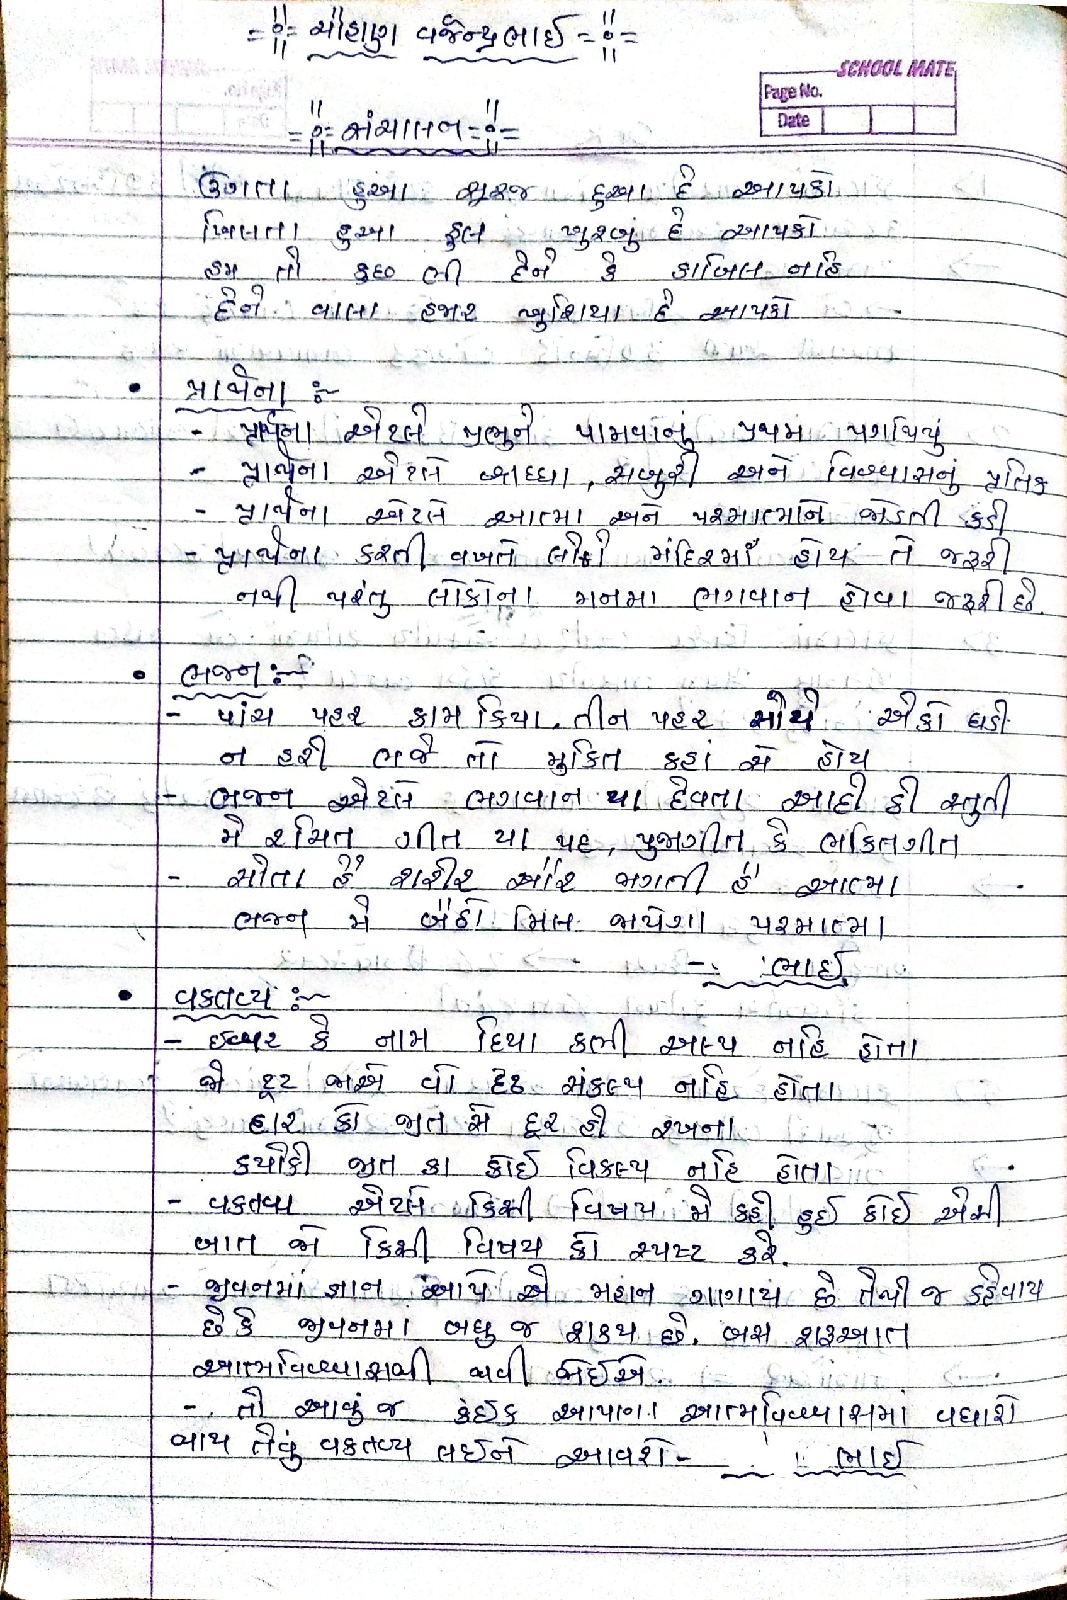 ચૌહાણ વર્જેન્દ્રભાઈ
SCHOOL MATE
Page No.
Date
સંચાલન
ઉગતા હુઆ સૂરજ દુઆ દે આપકો
ખિલતા હુઆ ફુલ ખુશ્બું દે આપકો
હમ તો કુછ ભી દેને કે કાબિલ નહિ
દેને વાલા હજાર ખુશિયા દે આપકો
• પ્રાર્થના :-
- પ્રાર્થના એટલે પ્રભુને પામવાનું પ્રથમ પગથિયું
- પ્રાર્થના એટલે શ્રધ્ધા, સબુરી અને વિશ્વાસનું પ્રતિક
- પ્રાર્થના એટલે આત્મા અને પરમાત્માને જોડતી કડી
- પ્રાર્થના કરતી વખતે લોકો મંદિરમાં હોય તે જરૂરી
નથી પરંતુ લોકોના મનમા ભગવાન હોવા જરૂરી છે.
• ભજન :-
- પાંચ પહર કામ કિયા. તીન પહર સોયે એકો ઘડી
ન હરી ભજે તો મુકિત કહાં સે હોય
- ભજન એટલે ભગવાન યા દેવતા આદી કી સ્તુતી
મે રચિત ગીત યા પદ, પુજાગીત કે ભકિતગીત
- સોતા હૈ શરીર ઔર જગતી હૈ આત્મા
ભજન મે બૈઠો મિલ જાયેગા પરમાત્મા
- ભાઈ
• વકતવ્ય :-
- ઇશ્વર કે નામ દિયા કભી અલ્પ નહિ હોતા
જો ટૂટ જાએ વો દ્રઢ સંકલ્પ નહિ હોતા
હાર કો જીત સે દૂર હી રખના
કયોકી જીત કા કોઈ વિકલ્પ નહિ હોતા
- વકતવ્ય એટલે કિસી વિષય મે કહી હુઈ કોઈ એસી
બાત જો કિસી વિષય કો સ્પષ્ટ કરે.
- જીવનમાં જ્ઞાન આપે એ મહાન ગણાય છે તેથી જ કહેવાય
છે કે જીવનમા બધુ જ શકય છે. બસ શરૂઆત
આત્મવિશ્વાસથી થવી જોઈએ.
- તો આવું જ કંઈક આપાના આત્મવિશ્વાસમાં વધારો
થાય તેવું વકતવ્ય લઈને આવશે - ભાઈ